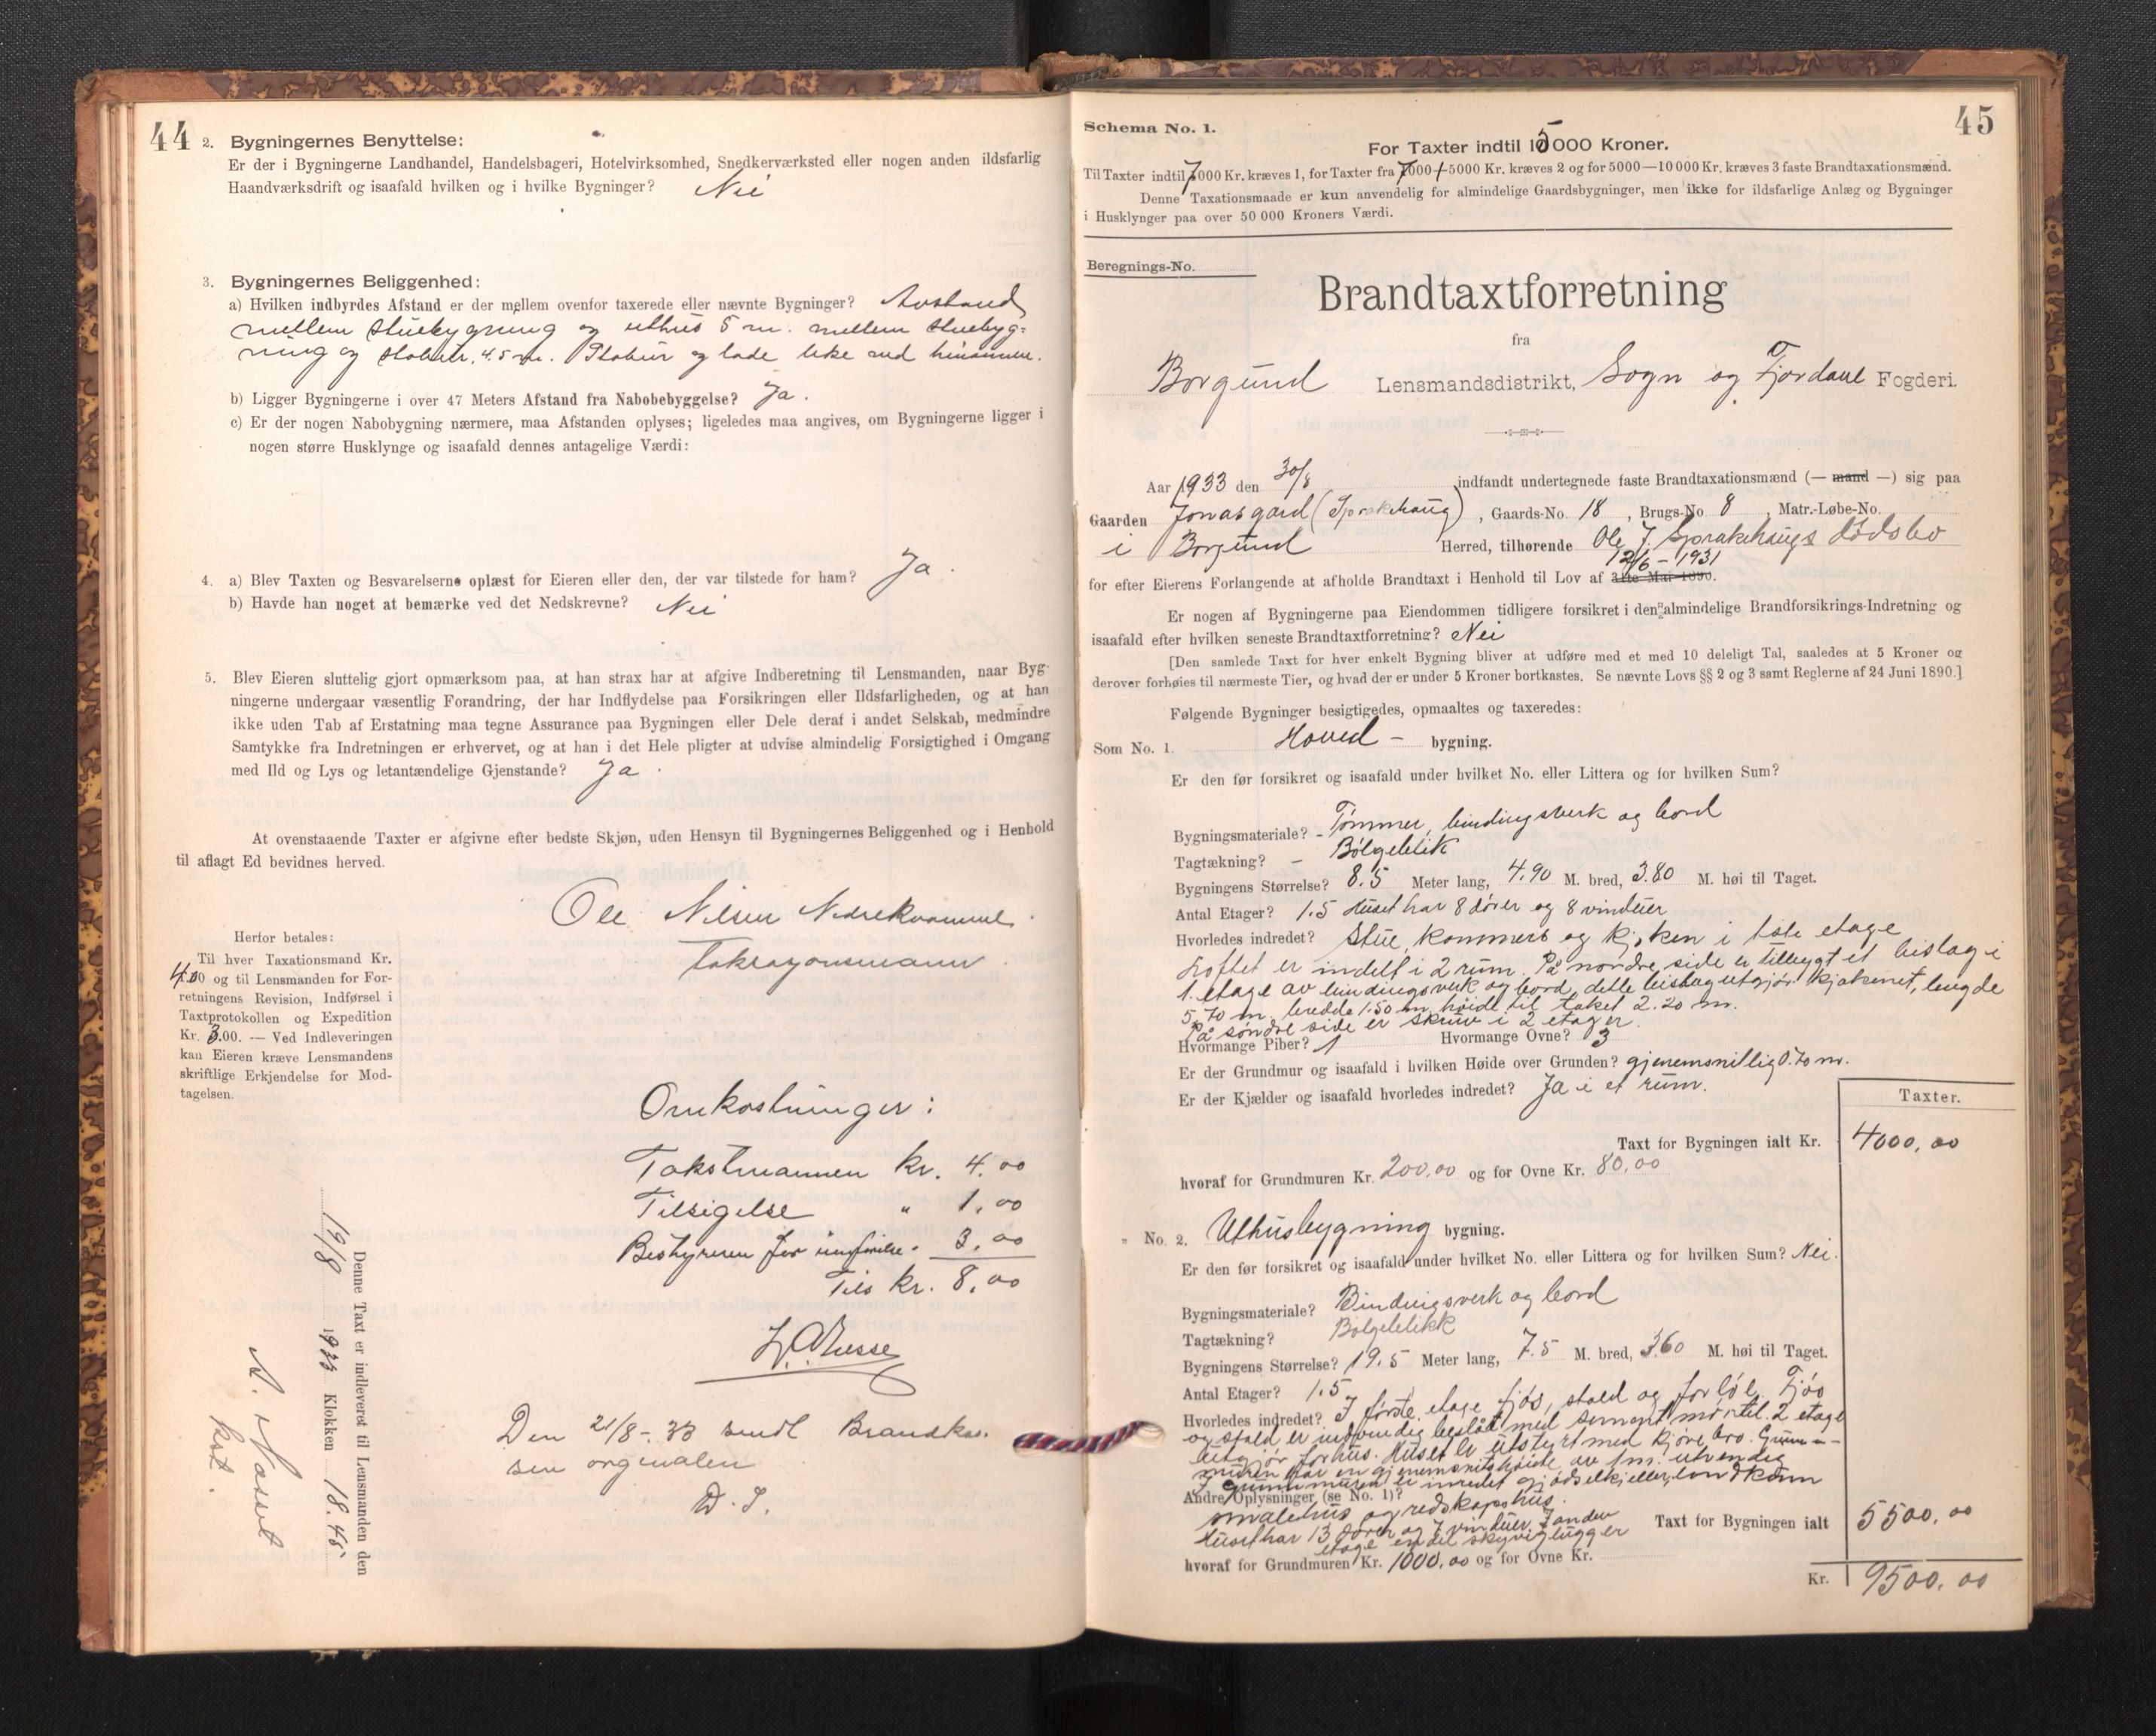 44
2. Bygningernes Benyttelse:
Er der i Bygningerne Landhandel, Handelsbageri, Hotelvirksomhed, Snedkerværksted eller nogen anden ildsfarlig
Haandværksdrift og isaafald hvilken og i hvilke Bygninger? Nei
3. Bygningernes Beliggenhed:
a) Hvilken indbyrdes Afstand er der mellem ovenfor taxerede eller nævnte Bygninger? Avstand
mellem stuebygning og uthus 5 m. mellem stuebyg-
ning og stabur 4.5 m. Stabur og lade like ved hinannen.
b) Ligger Bygningerne i over 47 Meters Afstand fra Nabobebyggelse? Ja.
c) Er der nogen Nabobygning nærmere, maa Afstanden oplyses; ligeledes maa angives, om Bygningerne ligger i
nogen større Husklynge og isaafald dennes antagelige Værdi:
4. a) Blev Taxten og Besvarelserne oplæst for Eieren eller den, der var tilstede for ham? Ja.
b) Havde han noget at bemærke ved det Nedskrevne? Nei
5. Blev Eieren sluttelig gjort opmærksom paa, at han strax har at afgive Indberetning til Lensmanden, naar Byg-
ningerne undergaar væsentlig Forandring, der har Indflydelse paa Forsikringen eller Ildsfarligheden, og at han
ikke uden Tab af Erstatning maa tegne Assurance paa Bygningen eller Dele deraf i andet Selskab, medmindre
Samtykke fra Indretningen er erhvervet, og at han i det Hele pligter at udvise almindelig Forsigtighed i Omgang
med Ild og Lys og letantændelige Gjenstande? Ja.
At ovenstaaende Taxter er afgivne efter bedste Skjøn, uden Hensyn til Bygningernes Beliggenhed og i Henhold
til aflagt Ed bevidnes herved.
Ole Nilsen Nedrekvamme.
Taksasjonsmann.
Herfor betales:
Til hver Taxationsmand Kr.
4.00 og til Lensmanden for For-
retningens Revision, Indførsel i
Taxtprotokollen og Expedition
Kr. 3.00. — Ved Indleveringen
kan Eieren kræve Lensmandens
skriftlige Erkjendelse for Mod-
tagelsen.
Omkostninger:
Takstmannen kr. 4.00
Tilsigelse " 1.00
Bestyreren for innførelse. 3.00
Tils kr. 8.00
Denne Taxt er indleveret til Lensmanden den
19/8 1933 Klokken 18.45
N. Nasset
kst.
Den 21/8-33 sendt Brandkas.
sen orginalen
D. S.
45
Schema No. 1.
For Taxter indtil 15000 Kroner.
Til Taxter indtil 7000 Kr. kræves 1, for Taxter fra 7000 + 5000 Kr. kræves 2 og for 5000—10000 Kr. kræves 3 faste Brandtaxationsmænd.
Denne Taxationsmaade er kun anvendelig for almindelige Gaardsbygninger, men ikke for ildsfarlige Anlæg og Bygninger
i Husklynger paa over 50 000 Kroners Værdi.
Beregnings-No.
Brandtaxtforretning
fra
Borgund Lensmandsdistrikt, Sogn og Fjordane Fogderi.
Aar 1933 den 30/8 indfandt undertegnede faste Brandtaxationsmænd (— mand —) sig paa
Gaarden Jonasgard (Sprakehaug), Gaards-No. 18, Brugs-No 8, Matr.-Løbe-No.
i Borgund Herred, tilhørende Ole J. Sprakehaugs dødsbo
12/6 - 1931
for efter Eierens Forlangende at afholde Brandtaxt i Henhold til Lov af 31te Mai 1890.
Er nogen af Bygningerne paa Eiendommen tidligere forsikret i den almindelige Brandforsikrings-Indretning og
isaafald efter hvilken seneste Brandtaxtforretning? Nei
[Den samlede Taxt for hver enkelt Bygning bliver at udføre med et med 10 deleligt Tal, saaledes at 5 Kroner og
derover forhøies til nærmeste Tier, og hvad der er under 5 Kroner bortkastes. Se nævnte Lovs §§ 2 og 3 samt Reglerne af 24 Juni 1890.]
Følgende Bygninger besigtigedes, opmaaltes og taxeredes:
Som No. 1. Hoved- bygning.
Er den før forsikret og isaafald under hvilket No. eller Littera og for hvilken Sum?
Bygningsmateriale? - Tømmer, bindingsverk og bord
Tagtækning? - Bølgeblik
Bygningens Størrelse? 8.5 Meter lang, 4.90 M. bred, 3.80 M. høi til Taget.
Antal Etager? 1.5 Huset har 8 dører og 8 vinduer
Hvorledes indredet? Stue, kommers og kjøken i 1ste etage
Loftet er indelt i 2 rum. På nordre side er tilbygt et bislag i
1. etage av bindingsverk og bord, dette bislag utgjør kjøkenet, lengde
5,70 m, bredde 1.50 m, høide til taket 2.20 m.
På søndre side er skruv i 2 etager.
Hvormange Piber? 1 Hvormange Ovne? 3
Er der Grundmur og isaafald i hvilken Høide over Grunden? gjenemsnitlig 0.70 m.
Er der Kjælder og isaafald hvorledes indredet? Ja i et rum.
Taxter.
Taxt for Bygningen ialt Kr. 4000,00
hvoraf for Grundmuren Kr. 200,00 og for Ovne Kr. 80,00
" No. 2. Uthusbygning bygning.
Er den før forsikret og isaafald under hvilket No. eller Littera og for hvilken Sum? Nei.
Bygningsmateriale? Bindingsverk og bord
Tagtækning? Bølgeblikk
Bygningens Størrelse? 19.5 Meter lang, 7.5 M. bred, 3.60 M. høi til Taget.
Antal Etager? 1.5
Hvorledes indredet? I første etage fjøs, stald og forløe. Fjøs
og stald er indvendig beslåt med sement mørtel. 2 etage
utgjør forhus. Huset er utstyrt med kjørebro. Grunn-
muren har en gjenemsnitshøide av 1 m. utvendig
I grunnmuren er inredet gjødselkjeller, landkum
Andre Oplysninger (se No. 1)?
smalehus og redskapshus.
Huset har 13 dører og 7 vinduer. I anden
etage en del skyveglugger
Taxt for Bygningen ialt 5500,00
hvoraf for Grundmuren Kr. 1000,00 og for Ovne Kr.
Kr. 9500,00